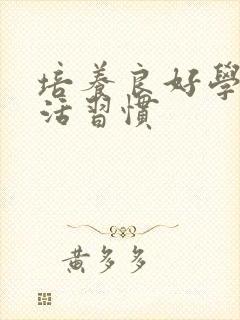 培養良好學
活習慣
黃多多